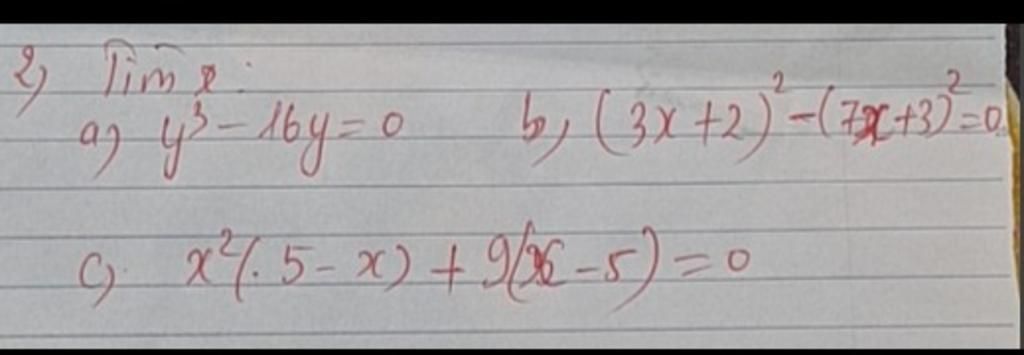 2) Tìm x:
a) y³ - 16y = 0 b) (3x + 2)² - (7x + 3)² = 0
c) x²(. 5 - x) + 9(x - 5) = 0